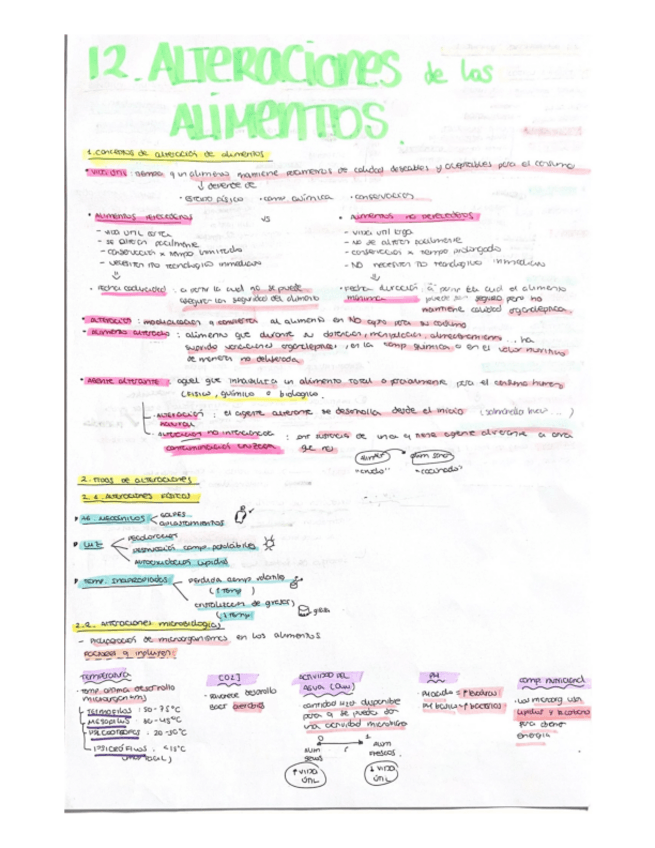 12. ALTERACIONES de las
ALIMENTOS.
1. CONCEPTOS DE ALTERACIÓN DE ALIMENTOS
• VIDA ÚTIL: tiempo q un alimento mantiene parámetros de calidad deseables y aceptables para el consumo
↓ depende de
• ESTADO FÍSICO • COMP. QUÍMICA • CONSERVACIÓN
• ALIMENTOS PERECEDEROS vs • ALIMENTOS NO PERECEDEROS
- vida útil corta
- vida útil larga
- se alteran fácilmente
- NO se alteran fácilmente
- conservación x tiempo limitado
- conservación x tiempo prolongado
- necesitan tto tecnológico inmediato
- NO necesitan tto tecnológico inmediato
• FECHA CADUCIDAD: a partir la cual no se puede
asegurar la seguridad del alimento
• FECHA DURACIÓN: a partir de la cual el alimento
MÍNIMA puede ser seguro pero no
mantiene calidad organoléptica
• ALTERACIÓN: modificación q convierte al alimento en NO apto para su consumo
• ALIMENTO ALTERADO: alimento que durante su obtención, manipulación, almacenamiento... ha
sufrido variaciones organolépticas, en la comp. química o en el valor nutritivo
de manera no deliberada.
• AGENTE ALTERANTE: aquel que inhabilita un alimento total o parcialmente para el consumo humano
(FÍSICO, QUÍMICO o biológico.
• ALTERACIÓN: el agente alterante se desarrolla desde el inicio
• ALTERACIÓN NO INTENCIONADA:
CONTAMINACIÓN CRUZADA
"crudo" "cocinado"
2. TIPOS DE ALTERACIONES
2.1. ALTERACIONES FÍSICAS
AG. MECÁNICOS GOLPES...
APLASTAMIENTOS
LUZ DECOLORACIÓN
DESTRUCCIÓN comp. fotolábiles
AUTOOXIDACIÓN lípidos
TEMP. INAPROPIADAS PÉRDIDA comp. volátiles
(↑ Temp)
cristalización de grasas
(↓ Temp) grasa
2.2. ALTERACIONES microbiológicas
- Proliferación de microorganismos en los alimentos
FACTORES q influyen:
TEMPERATURA
- temp. óptima desarrollo
microorganismos
TERMÓFILOS: 50-75°C
MESÓFILOS: 30-45°C
PSICRÓTROFOS: 20-30°C
PSICRÓFILOS: <15°C
[O2]
• favorece desarrollo
bact aerobias
ACTIVIDAD DEL
AGUA (aw)
cantidad H2O disponible
para q se pueda dar
una actividad microbiana
0 1
ALIM ALIM
secos frescos
↑ VIDA ÚTIL
↓ VIDA ÚTIL
PH
PH ácido = ↑
PH básico = ↑ bacterias
comp. nutricional
• Los microorg usan
para obtener
energía